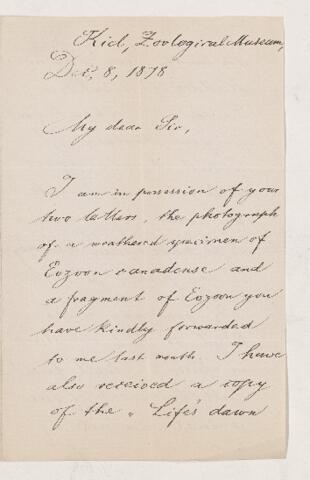 Kiel, Zoological Museum,
Dec, 8, 1878
My dear Sir,
I am in possession of your
two letters, the photograph
of a weathered specimen of
Eozoon canadense and
a fragment of Eozoon you
have kindly forwarded
to me last month. I have
also received a copy
of the „ Life's dawn